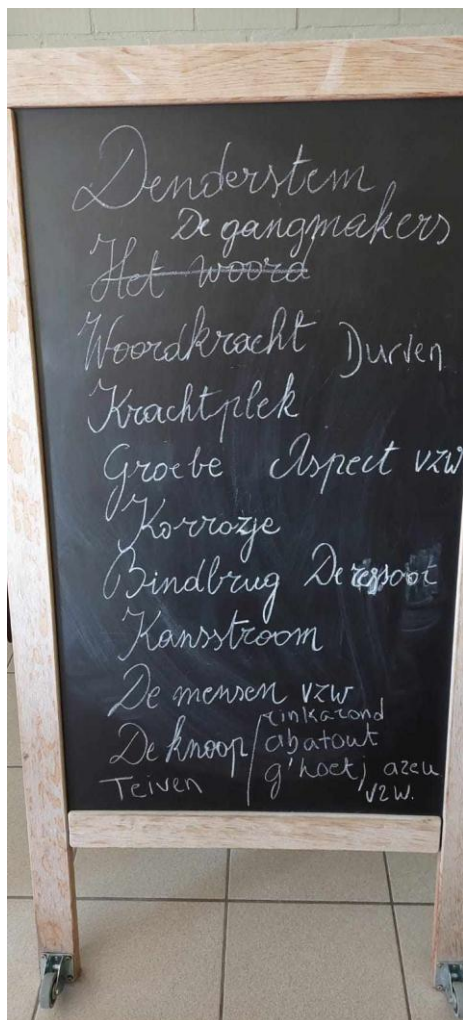 Denderstem
De gangmakers
Het woord
Woordkracht Durven
Krachtplek
Groebe Aspect vzw
Korrozje
Bindbrug De
Kansstroom
De mensen vzw
De knoop/rinkarond
abatout
g'hoetj azeu
Teiven vzw.